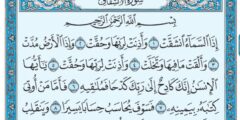 سُورَةُ الانشِقَاقِ
بِسْمِ اللَّهِ الرَّحْمَٰنِ الرَّحِيمِ
إِذَا السَّمَاءُ انشَقَّتْ ١ وَأَذِنَتْ لِرَبِّهَا وَحُقَّتْ ٢ وَإِذَا الْأَرْضُ مُدَّتْ
٣ وَأَلْقَتْ مَا فِيهَا وَتَخَلَّتْ ٤ وَأَذِنَتْ لِرَبِّهَا وَحُقَّتْ ٥ يَا أَيُّهَا
الْإِنسَانُ إِنَّكَ كَادِحٌ إِلَىٰ رَبِّكَ كَدْحًا فَمُلَاقِيهِ ٦ فَأَمَّا مَنْ أُوتِيَ
كِتَابَهُ بِيَمِينِهِ ٧ فَسَوْفَ يُحَاسَبُ حِسَابًا يَسِيرًا ٨ وَيَنقَلِبُ